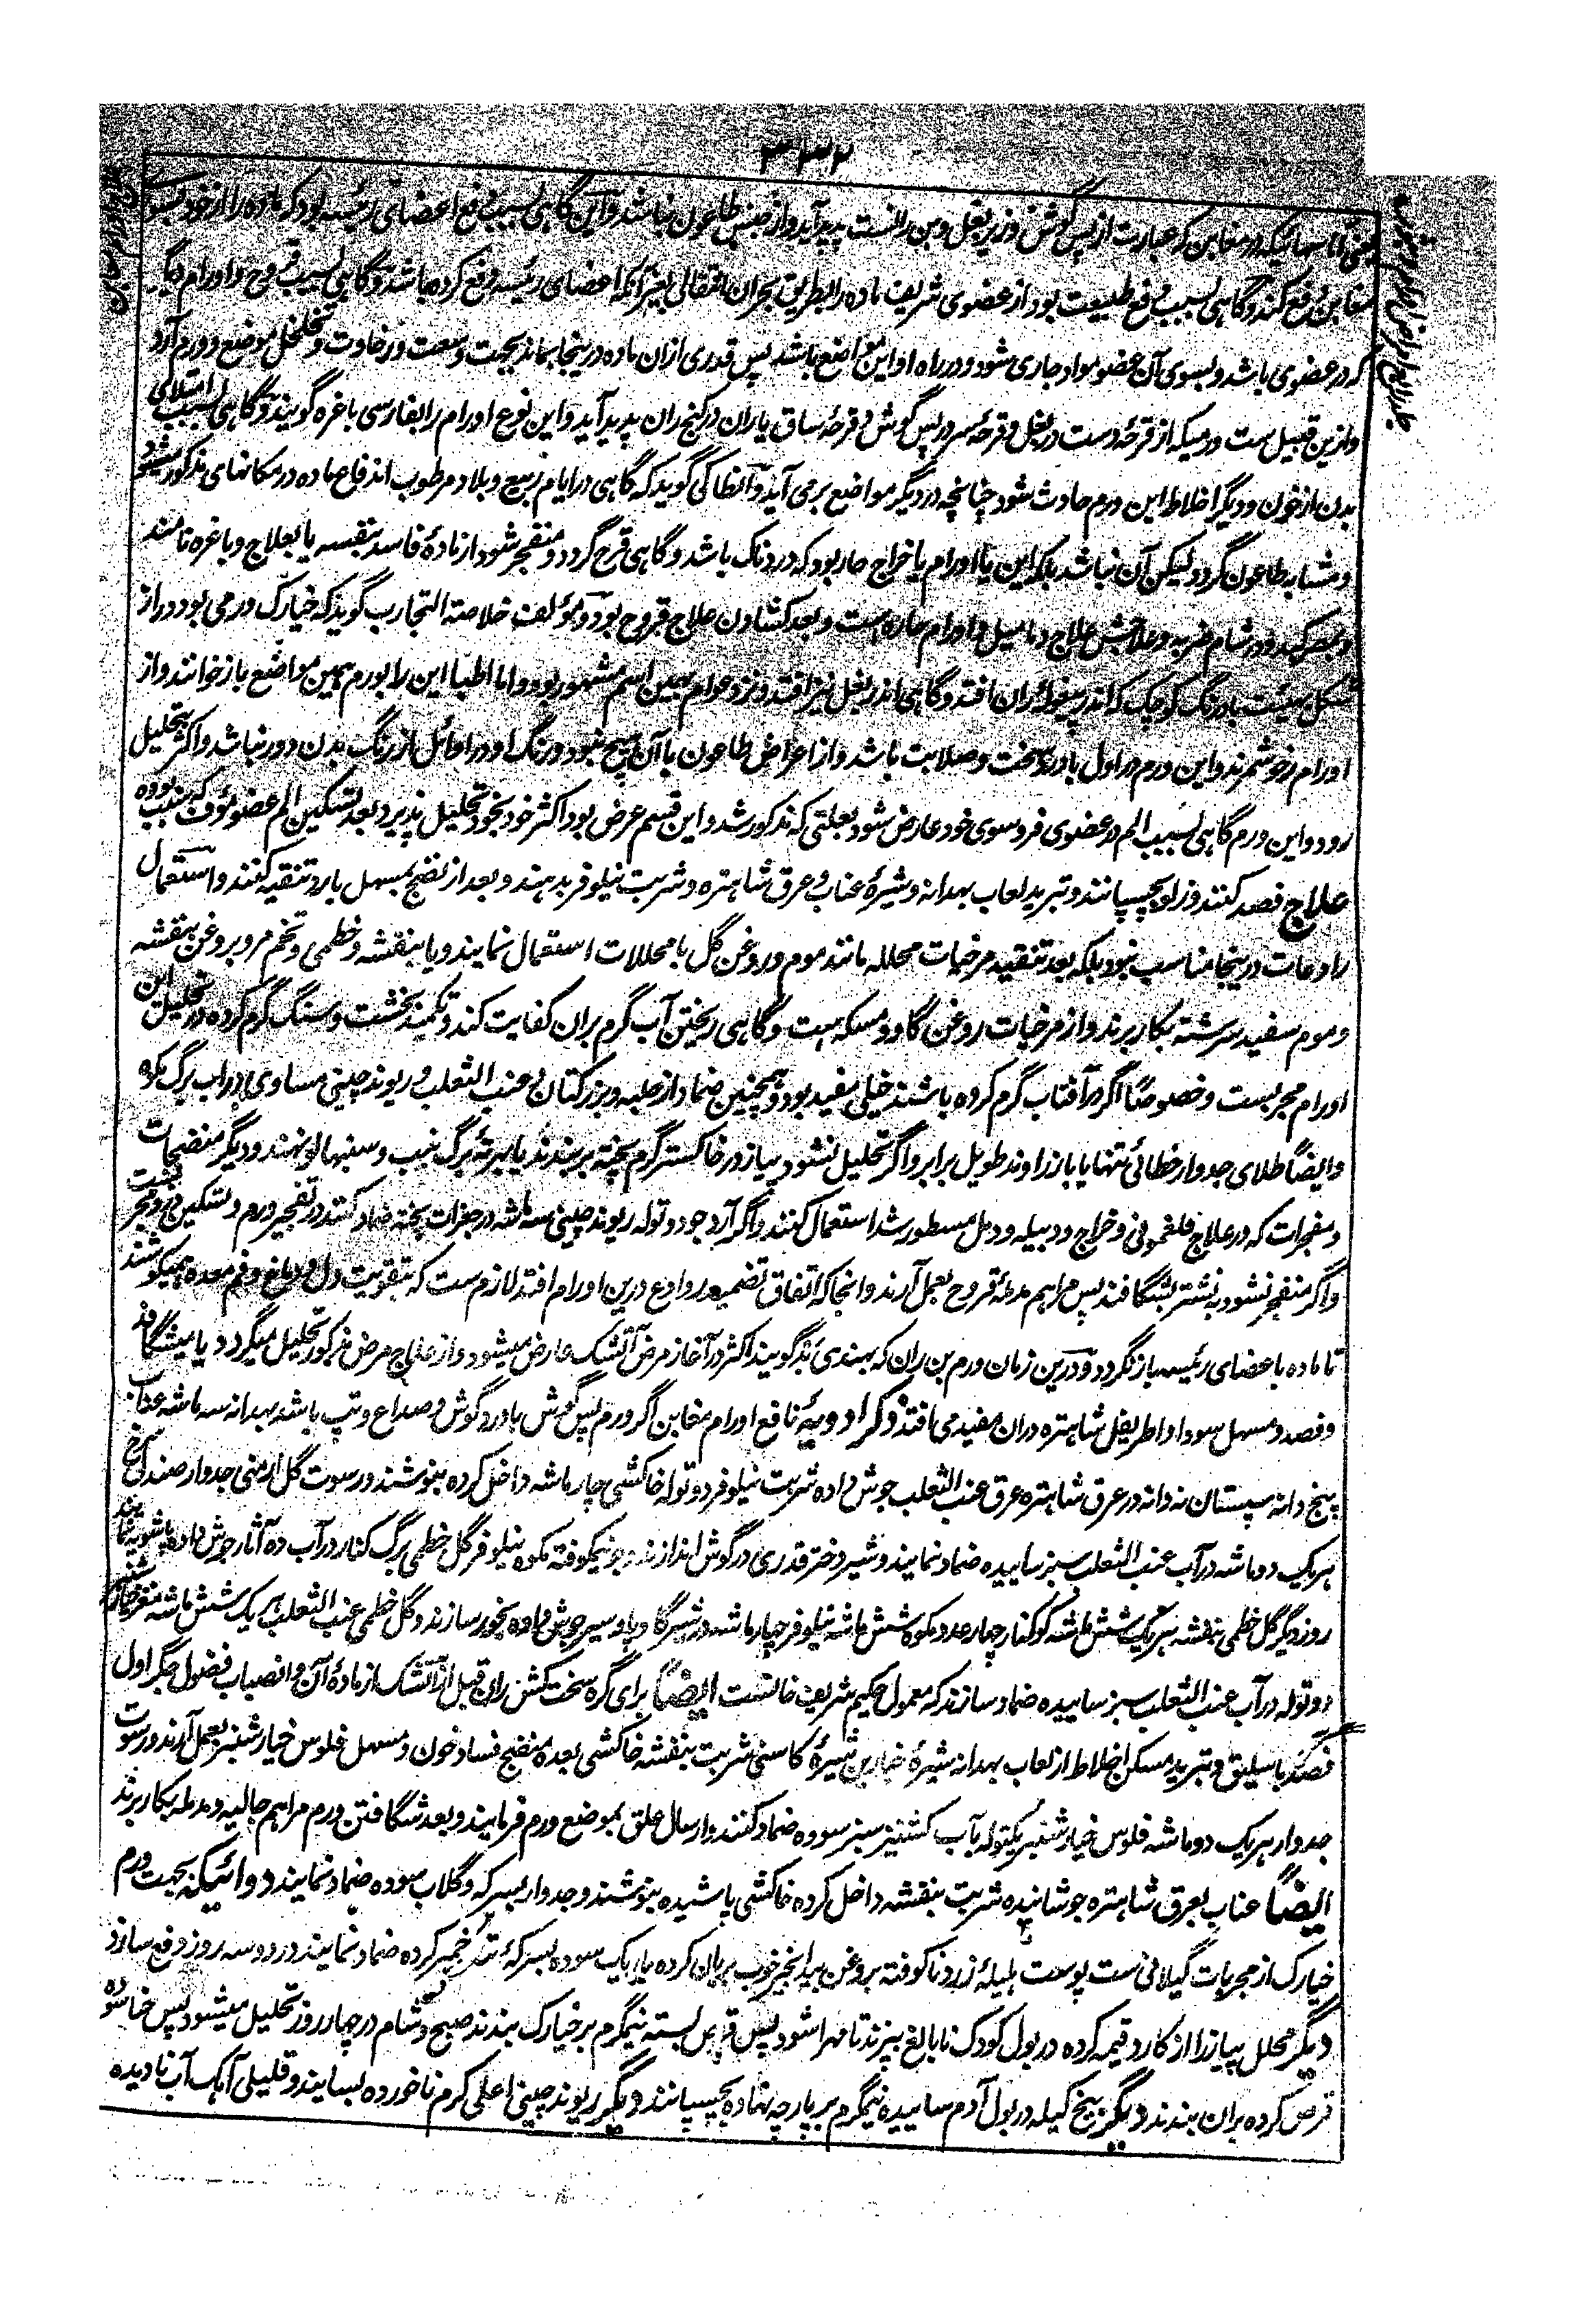 ۳۳۲
یعنی آماسهائیکه در مغابن که عبارت از پس گوش و زیر بغل و بن رانست پدید آید و از جنس طاعون نباشد و این گاهی بسبب دفع اعضای رئیسه بود که ماده را از خود بسوی
مغابن دفع کند و گاهی بسبب دفع طبیعت بود از عضوی شریف ماده را بطریق بحران انتقالی بغیر آنکه اعضای رئیسه دفع کرده باشد و گاهی بسبب قروح و اورام دیگر
که در عضوی باشد و بسوی آن عضو مواد جاری شود و در راه او این مواضع باشد پس قدری ازان ماده درینجا بماند بجهت وسعت و رخاوت و تخلخل موضع و ورم آرد
و ازین قبیل ست ورمیکه از قرحهٔ دست در بغل و قرحهٔ سر در پس گوش و قرحهٔ ساق یا ران در کنج ران پدید آید و این نوع اورام را بفارسی باغره گویند و گاهی بسبب امتلای
بدن از خون و دیگر اخلاط این ورم حادث شود چنانچه در دیگر مواضع برمی آید و انطاکی گوید که گاهی در ایام ربیع و بلاد مرطوب اندفاع ماده در مکانهای مذکور میشود
و مشابه طاعون گردد لیکن آن نباشد بلکه این یا اورام یا خراج حار بود که دردناک باشد و گاهی قرح گردد و منفجر شود از مادهٔ فاسد بنفسه یا بعلاج و باغره نامند
و بعلاجش علاج دمامیل و اورام حاره است و بعد کشادن علاج قروح بود و مؤلف خلاصة التجارب گوید که خیارک ورمی بود دراز
شکل بهیئت بادرنگ کوچک که اندر پیغولهٔ ران افتد و گاهی اندر بغل نیز افتد و نزد عوام بهمین اسم مشهور بود و اما اطبا این را بورم همین مواضع باز خوانند و از
اورام رخو شمرند و این ورم در اول با درد سخت و صلابت باشد و از اعراض طاعون با آن هیچ نبود و رنگ او در اوائل از رنگ بدن دور نباشد و اکثر بتحلیل
رود و این ورم گاهی بسبب الم در عضوی فروسوی خود عارض شود بعلتی که مذکور شد و این قسم عرض بود اکثر خود بخود تحلیل پذیرد بعد تسکین الم عضو مؤف که سبب بوده
علاج فصد کنند و زلو بچسپانند و تبرید لعاب بهدانه و شیرهٔ عناب و عرق شاهتره و شربت نیلوفر بدهند و بعد از نضج بمسهل بارد تنقیه کنند و استعمال
رادعات درینجا مناسب نبود بلکه بعد تنقیه مرخیات محلله مانند موم و روغن گل با محللات استعمال نمایند و یا بنفشه و خطمی و تخم مرو بروغن بنفشه
و موم سفید سرشته بکار برند و از مرخیات روغن گاو و مسکه است و گاهی ریختن آب گرم بران کفایت کند و تکمید بخشت و سنگ گرم کرده در تحلیل این
اورام مجربست و خصوصاً اگر در آفتاب گرم کرده باشند خیلی مفید بود و همچنین ضماد از حلبه و بزرکتان و عنب الثعلب و ریوند چینی مساوی در آب برگ مکوه
و ایضاً طلای جدوار خطائی تنها یا با زراوند طویل برابر و اگر تحلیل نشود پیاز در خاکستر گرم پخته بربندند یا برتهٔ برگ نیب و سنبهالو نهند و دیگر منضجات
و مفجرات که در علاج فلغمونی و خراج و دبیله و دمل مسطور شد استعمال کنند و اگر آرد جو دو توله ریوند چینی سه ماشه در جغرات پخته ضماد کنند در تفجیر ورم و تسکین وجع مجربست
و اگر منفجر نشود به نشتر بشگافند پس مراهم مدملهٔ قروح بعمل آرند و انجا که اتفاق تضمید روادع درین اورام افتد لازم ست که بتقویت دل و دماغ و فم معده همیکوشند
تا ماده باعضای رئیسه باز نگردد و درین زمان ورم بن ران که بهندی بدگویند اکثر در آغاز مرض آتشک عارض میشود و از علاج مرض مذکور تحلیل میگردد یا میشگافد
و فصد و مسهل سودا و اطریفل شاهتره دران مفید می افتد ذکر ادویهٔ نافع اورام مغابن اگر ورم پس گوش با درد گوش و صداع و تپ باشد بهدانه سه ماشه عناب
پنج دانه سپستان نه دانه در عرق شاهتره عرق عنب الثعلب جوش داده شربت نیلوفر دو توله خاکشی چار ماشه داخل کرده بنوشند و رسوت گل ارمنی جدوار صندل سرخ
هر یک دو ماشه در آب عنب الثعلب سبز ساییده ضماد نمایند و شیر دختر قدری در گوش اندازند و جو نیمکوفته مکوه نیلوفر گل خطمی برگ کنار در آب ده آثار جوش داده پاشویه نمایند
روز دیگر گل خطمی بنفشه هر یک شش ماشه کوکنار چهار عدد مکوه شش ماشه نیلوفر چهار ماشه در شیر گاو پاو سیر جوش داده بخور سازند و گل خطمی عنب الثعلب هر یک شش ماشه مغز خیارشنبر
دو توله در آب عنب الثعلب سبز ساییده ضماد سازند که معمول حکیم شریف خانست ایضاً برای گره سخت کش ران قبل از آتشک از مادهٔ آن و انصباب فضول جگر اول
فصد باسلیق و تبرید مسکن اخلاط از لعاب بهدانه شیرهٔ خیارین شیرهٔ کاسنی شربت بنفشه خاکشی بعده منضج فساد خون و مسهل فلوس خیارشنبر بعمل آرند و رسوت
جدوار هر یک دو ماشه فلوس خیارشنبر یکتوله بآب کشنیز سبز سوده ضماد کنند و ارسال علق بموضع ورم فرمایند و بعد شگافتن ورم مراهم جالیه و مدمله بکار برند
ایضاً عناب بعرق شاهتره جوشانیده شربت بنفشه داخل کرده خاکشی پاشیده بنوشند و جدوار بسرکه و گلاب سوده ضماد نمایند دوائیکه بجهت ورم
خیارک از مجربات گیلانی ست پوست هلیلهٔ زرد ناکوفته بروغن بیدانجیر خوب بریان کرده باریک سوده بسرکهٔ تند خمیر کرده ضماد نمایند در دو سه روز دفع سازد
دیگر محلل پیاز را از کارد قیمه کرده در بول کودک نابالغ بپزند تا مهرا شود پس قرص بسته نیمگرم بر خیارک بندند صبح و شام در چهار روز تحلیل میشود پس
قرص کرده بران بندند دیگر بیخ کیله در بول آدم ساییده نیمگرم بر پارچه نهاده بچسپانند دیگر ریوند چینی اعلی کرم ناخورده بسایند و قلیلی آهک آب نادیده